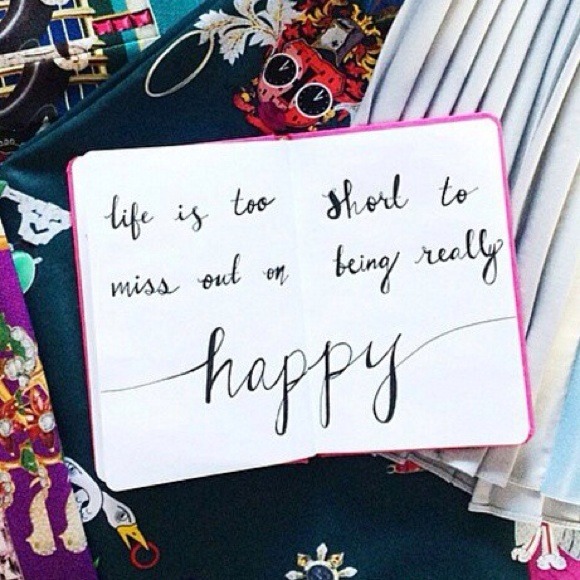 life is too short to
miss out on being really
happy